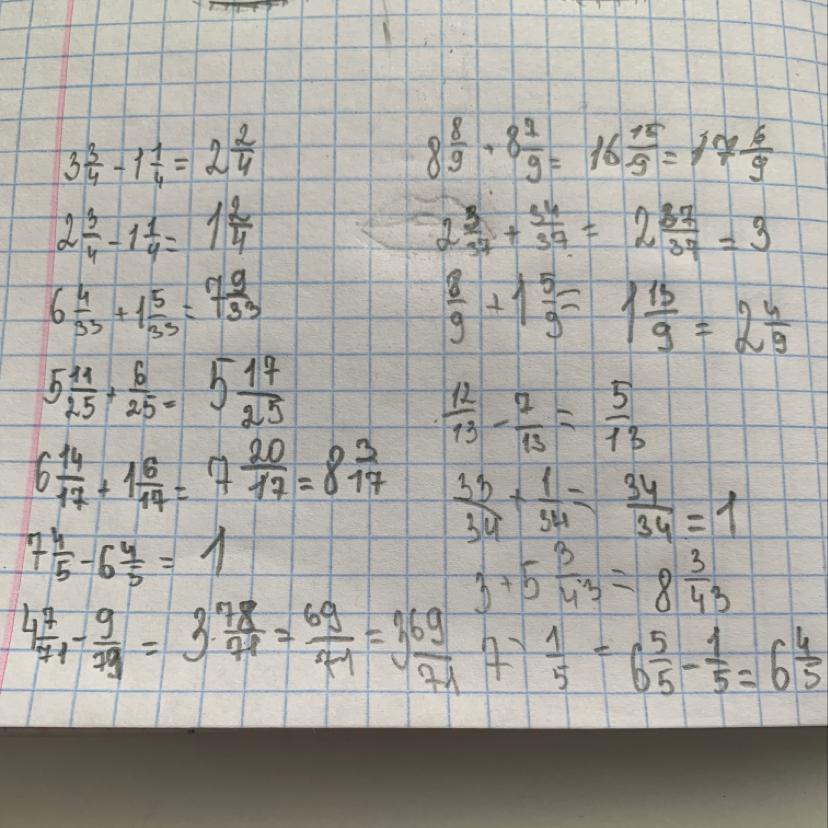 3 3/4 - 1 1/4 = 2 2/4
2 3/4 - 1 1/4 = 1 2/4
6 4/33 + 1 5/33 = 7 9/33
5 11/25 + 6/25 = 5 17/25
6 14/17 + 1 6/17 = 7 20/17 = 8 3/17
7 4/5 - 6 4/5 = 1
4 7/71 - 9/79 = 3 78/71 = 69/71 = 3 69/71
8 8/9 + 8 7/9 = 16 15/9 = 17 6/9
2 3/37 + 34/37 = 2 37/37 = 3
8/9 + 1 5/9 = 1 13/9 = 2 4/9
12/13 - 7/13 = 5/13
33/34 + 1/34 = 34/34 = 1
3 + 5 3/43 = 8 3/43
7 - 1/5 = 6 5/5 - 1/5 = 6 4/5